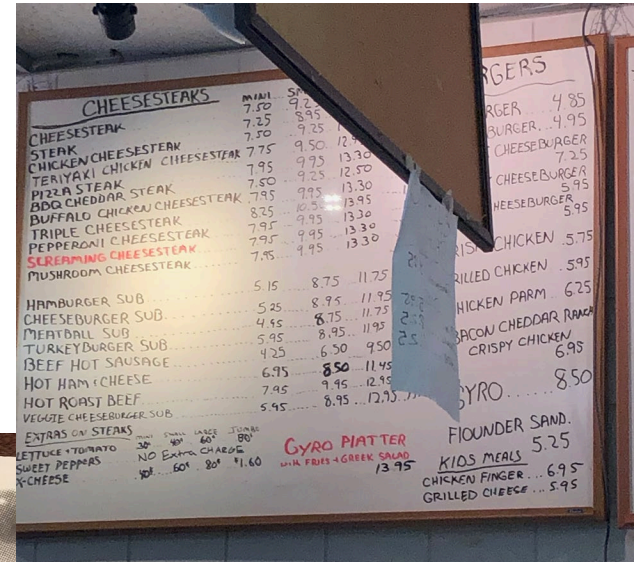 CHEESESTEAKS
MINI
CHEESESTEAK 7.50 9.2
STEAK 7.25 8.95
CHICKEN CHEESESTEAK 7.50 9.25
TERIYAKI CHICKEN CHEESESTEAK 7.75 9.50
PIZZA STEAK 7.95 9.95 13.30
BBQ CHEDDAR STEAK 7.50 9.25 12.50
BUFFALO CHICKEN CHEESESTEAK .795 9.95 13.30
TRIPLE CHEESESTEAK 8.25 13.95
PEPPERONI CHEESESTEAK 7.95 9.95 13.30
SCREAMING CHEESESTEAK 7.95 9.95 13.30
MUSHROOM CHEESESTEAK 7.95 9.95 13.30
HAMBURGER SUB 5.15 8.75 11.75
CHEESEBURGER SUB 5.25 8.95 11.95
MEATBALL SUB 4.95 8.75 11.75
TURKEYBURGER SUB 5.95 8.95 11.95
BEEF HOT SAUSAGE 4.25 6.50 9.50
HOT HAM & CHEESE 6.95 8.50 11.45
HOT ROAST BEEF 7.95 9.95 12.95
VEGGIE CHEESEBURGER SUB 5.95 8.95 12.95
EXTRAS ON STEAKS MINI SMALL LARGE JUMBO
30¢ 40¢ 60¢ 80¢
LETTUCE + TOMATO NO EXTRA CHARGE
SWEET PEPPERS
X-CHEESE 40¢ 60¢ 80¢ $1.60
GYRO PLATTER
with FRIES + GREEK SALAD
13.95
RGERS
RGER 4.85
BURGER... 4.95
CHEESEBURGER
7.25
CHEESEBURGER
5.95
HEESEBURGER
5.95
CHICKEN .5.75
RILLED CHICKEN . 5.95
HICKEN PARM .. 6.25
BACON CHEDDAR RANCH
CRISPY CHICKEN
6.95
GYRO...... 8.50
FLOUNDER SAND.
5.25
KIDS MEALS
CHICKEN FINGER... 6.95
GRILLED CHEESE... 5.95